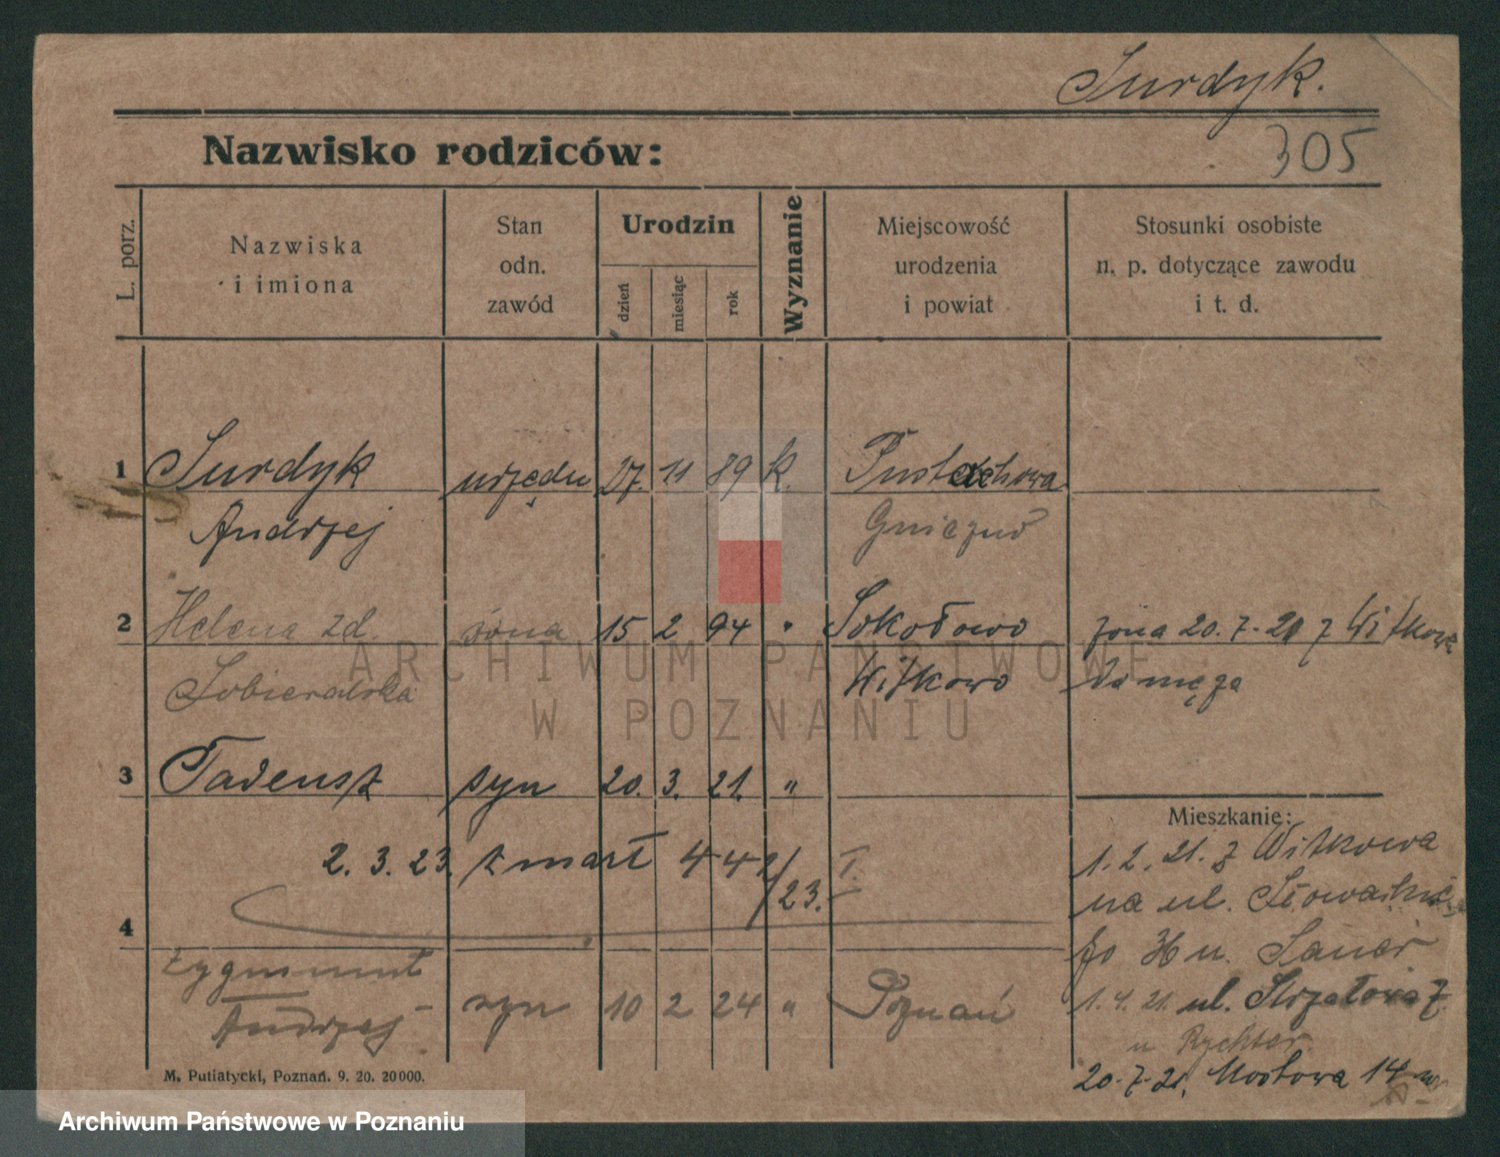 Surdyk.
Nazwisko rodziców:
305
L. porz.
Nazwiska
i imiona
Stan
odn.
zawód
Urodzin
dzień
miesiąc
rok
Wyznanie
Miejscowość
urodzenia
i powiat
Stosunki osobiste
n. p. dotyczące zawodu
i t. d.
1 Surdyk urzędn 27. 11 89 k. Pustachowa
Andrzej Gniezno
2 Helena zd. żona 15 2 94 " Sokołowo żona 20.7.21 z Witkowa
Sobieralska Witkowo do męża
3 Tadeusz syn 20. 3. 21. "
Mieszkanie:
2. 3. 23. zmarł 44 2/23. T.
1. 2. 21. z Witkowa
na ul.
4
Zygmunt
Andrzej syn 10 2 24 " Poznań
1.4.21. ul. Strzałowa 7.
u Rychter
20.7.21. Mostowa 14
M. Putiatycki, Poznań. 9. 20. 20000.
ARCHIWUM PAŃSTWOWE
W POZNANIU
Archiwum Państwowe w Poznaniu